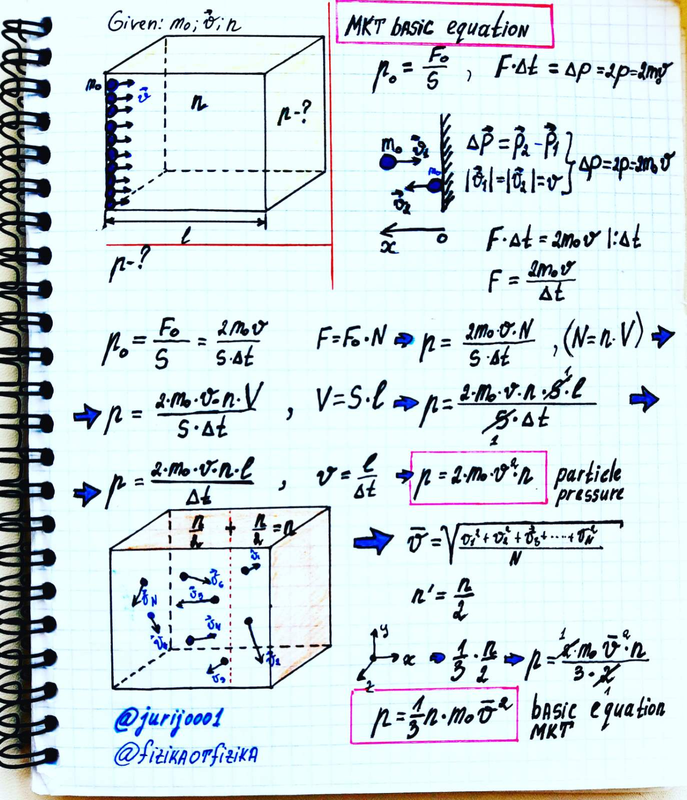 Given: m₀; v⃗; n
MKT basic equation
p₀ = F₀/S , F·Δt = Δp = 2p = 2m₀v
m₀
v⃗
n
p-?
l
p-?
m₀ v⃗₁
m₀
v⃗₂
x 0
Δp⃗ = p⃗₂ - p⃗₁
|v⃗₁| = |v⃗₂| = v } Δp = 2p = 2m₀v
F·Δt = 2m₀v |:Δt
F = 2m₀v/Δt
p₀ = F₀/S = 2m₀v/S·Δt F = F₀·N ⇒ p = 2m₀·v·N/S·Δt , (N = n·V) ⇒
⇒ p = 2·m₀·v·n·V/S·Δt , V = S·l ⇒ p = 2·m₀·v·n·S¹·l/S₁·Δt ⇒
⇒ p = 2·m₀·v·n·l/Δt , v = l/Δt ⇒ p = 2·m₀·v²·n particle
pressure
n/2 + n/2 = n
⇒ v̄ = √(v₁² + v₂² + v₃² + ···· + v_N²/N)
n' = n/2
v⃗₁
v⃗₆
v⃗₅
v⃗_N
v⃗₄
v⃗₂
v⃗₃
y
x
z
⇒ 1/3 · n/2 ⇒ p = ¹2·m₀·v̄²·n/3·2₁
p = 1/3 n·m₀·v̄² basic equation
MKT
@jurij0001
@fizikaotfizika